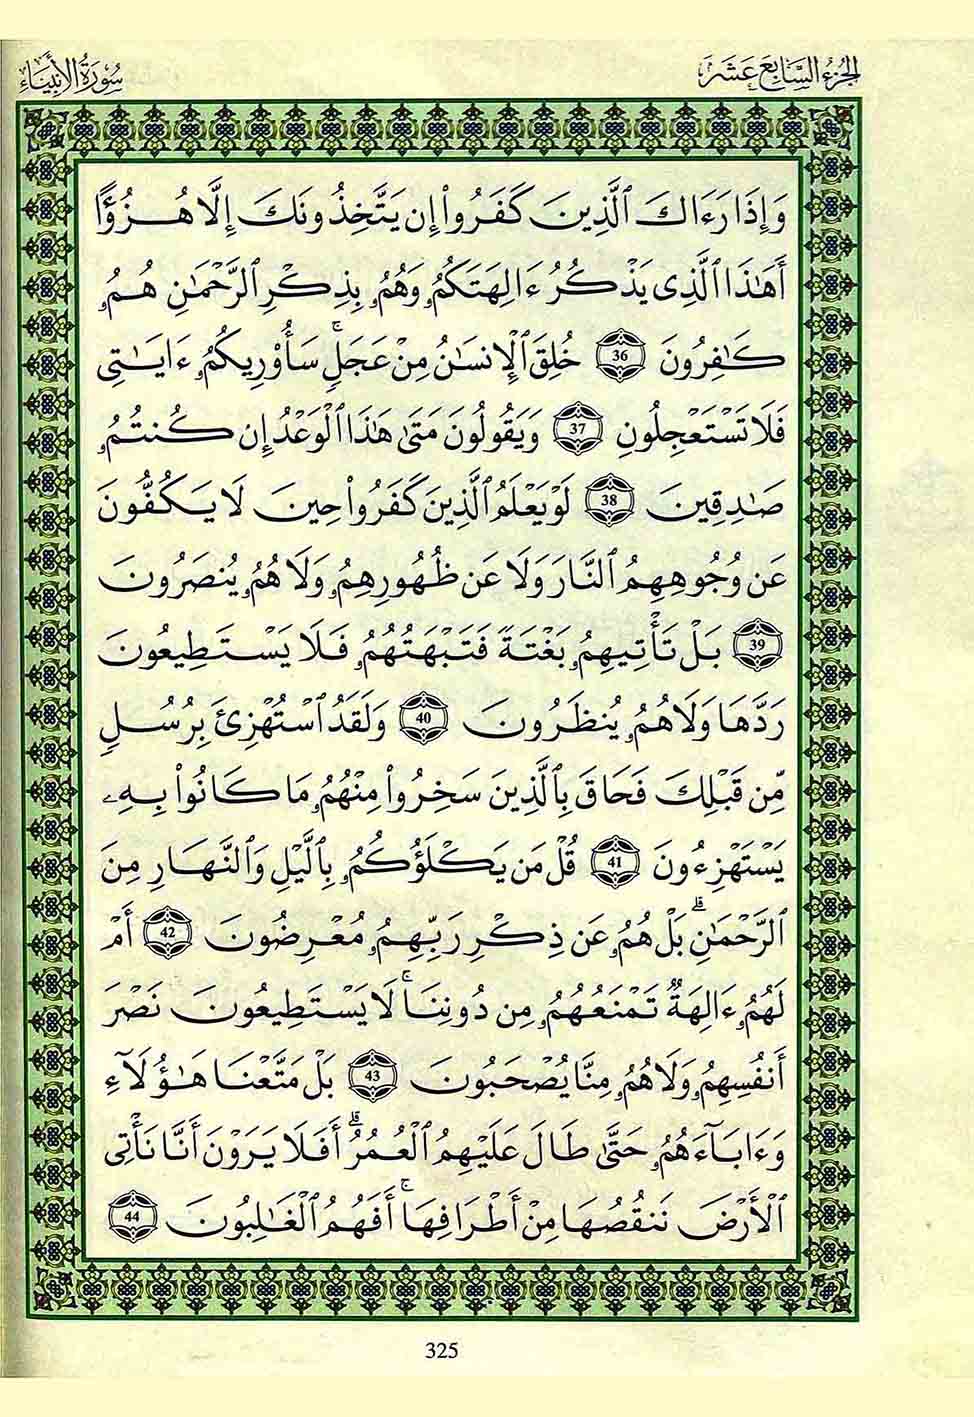 الجزء السابع عشر
سورة الأنبياء
وَإِذَا رَءَاكَ ٱلَّذِينَ كَفَرُوا۟ إِن يَتَّخِذُونَكَ إِلَّا هُزُؤًا
أَهَٰذَا ٱلَّذِى يَذْكُرُ ءَالِهَتَكُمُۥ وَهُمُۥ بِذِكْرِ ٱلرَّحْمَٰنِ هُمُۥ
كَٰفِرُونَ 36 خُلِقَ ٱلْإِنسَٰنُ مِنْ عَجَلٍۚ سَأُو۟رِيكُمُۥٓ ءَايَٰتِى
فَلَا تَسْتَعْجِلُونِ 37 وَيَقُولُونَ مَتَىٰ هَٰذَا ٱلْوَعْدُ إِن كُنتُمُۥ
صَٰدِقِينَ 38 لَوْ يَعْلَمُ ٱلَّذِينَ كَفَرُوا۟ حِينَ لَا يَكُفُّونَ
عَن وُجُوهِهِمُ ٱلنَّارَ وَلَا عَن ظُهُورِهِمُۥ وَلَا هُمُۥ يُنصَرُونَ
39 بَلْ تَأْتِيهِمُۥ بَغْتَةً فَتَبْهَتُهُمُۥ فَلَا يَسْتَطِيعُونَ
رَدَّهَا وَلَا هُمُۥ يُنظَرُونَ 40 وَلَقَدُ ٱسْتُهْزِئَ بِرُسُلٍ
مِّن قَبْلِكَ فَحَاقَ بِٱلَّذِينَ سَخِرُوا۟ مِنْهُمُۥ مَا كَانُوا۟ بِهِۦ
يَسْتَهْزِءُونَ 41 قُلْ مَن يَكْلَؤُكُمُۥ بِٱلَّيْلِ وَٱلنَّهَارِ مِنَ
ٱلرَّحْمَٰنِۗ بَلْ هُمُۥ عَن ذِكْرِ رَبِّهِمُۥ مُعْرِضُونَ 42 أَمْ
لَهُمُۥٓ ءَالِهَةٌ تَمْنَعُهُمُۥ مِن دُونِنَاۚ لَا يَسْتَطِيعُونَ نَصْرَ
أَنفُسِهِمُۥ وَلَا هُمُۥ مِنَّا يُصْحَبُونَ 43 بَلْ مَتَّعْنَا هَٰؤُلَآءِ
وَءَابَآءَهُمُۥ حَتَّىٰ طَالَ عَلَيْهِمُ ٱلْعُمُرُۗ أَفَلَا يَرَوْنَ أَنَّا نَأْتِى
ٱلْأَرْضَ نَنقُصُهَا مِنْ أَطْرَافِهَاۚ أَفَهُمُ ٱلْغَٰلِبُونَ 44
325